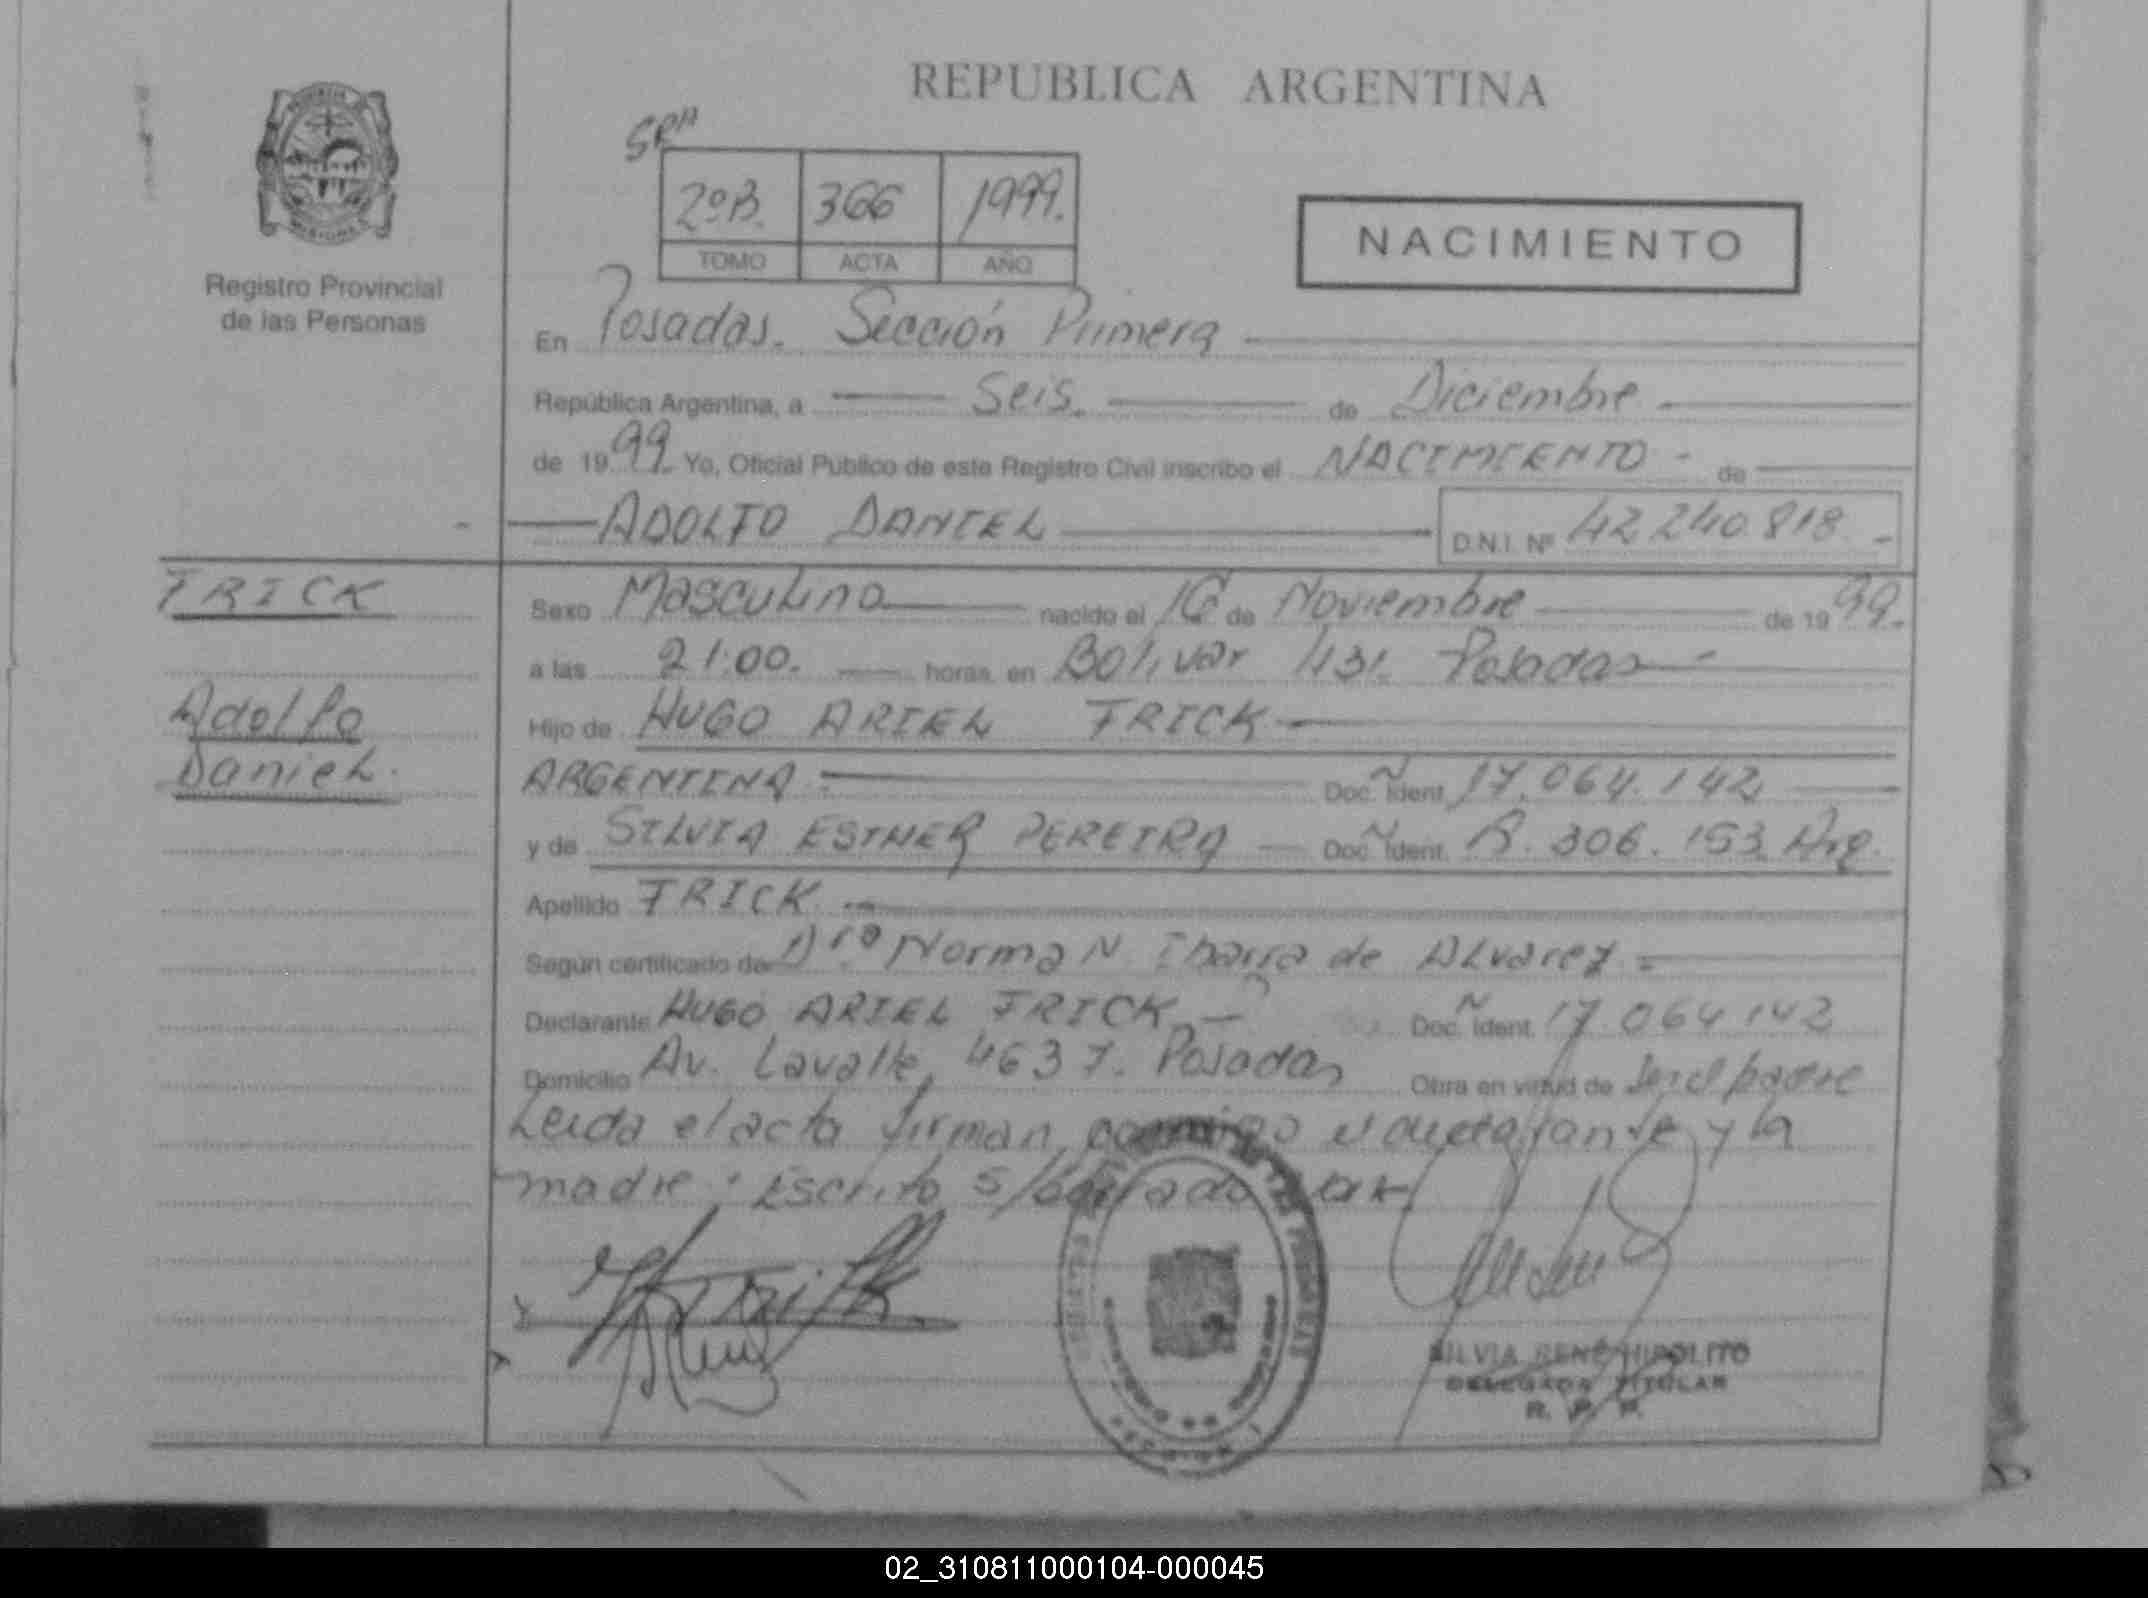 REPUBLICA ARGENTINA
SRA
2ºB. 366 1999.
TOMO ACTA AÑO
NACIMIENTO
Registro Provincial
de las Personas
En Posadas. Sección Primera
República Argentina, a Seis. de Diciembre
de 1999. Yo, Oficial Público de este Registro Civil inscribo el NACIMIENTO - de
ADOLFO DANIEL D.N.I. Nº 42 240.818 -
TRICK
Adolfo
Daniel.
Sexo Masculino nacido el 16 de Noviembre de 1999.
a las 21:00. horas en Bolivar 431. Posadas -
Hijo de HUGO ARIEL TRICK
ARGENTINA Doc. Ident. 17.064.142
y de SILVIA ESTHER PEREIRA Doc. Ident. 306.153 Arg.
Apellido TRICK
Según certificado de Dra Norma N. Ibarra de Alvarez
Declarante HUGO ARIEL TRICK Doc. Ident. 17.064 142
Domicilio Av. Lavalle, 4637. Posadas Obra en virtud de ser el padre
Leida el acta firman conmigo el declarante y la
madre; Escrito s/
SILVIA RENE HIPOLITO
DELEGADA TITULAR
R. P. P.
02_310811000104-000045